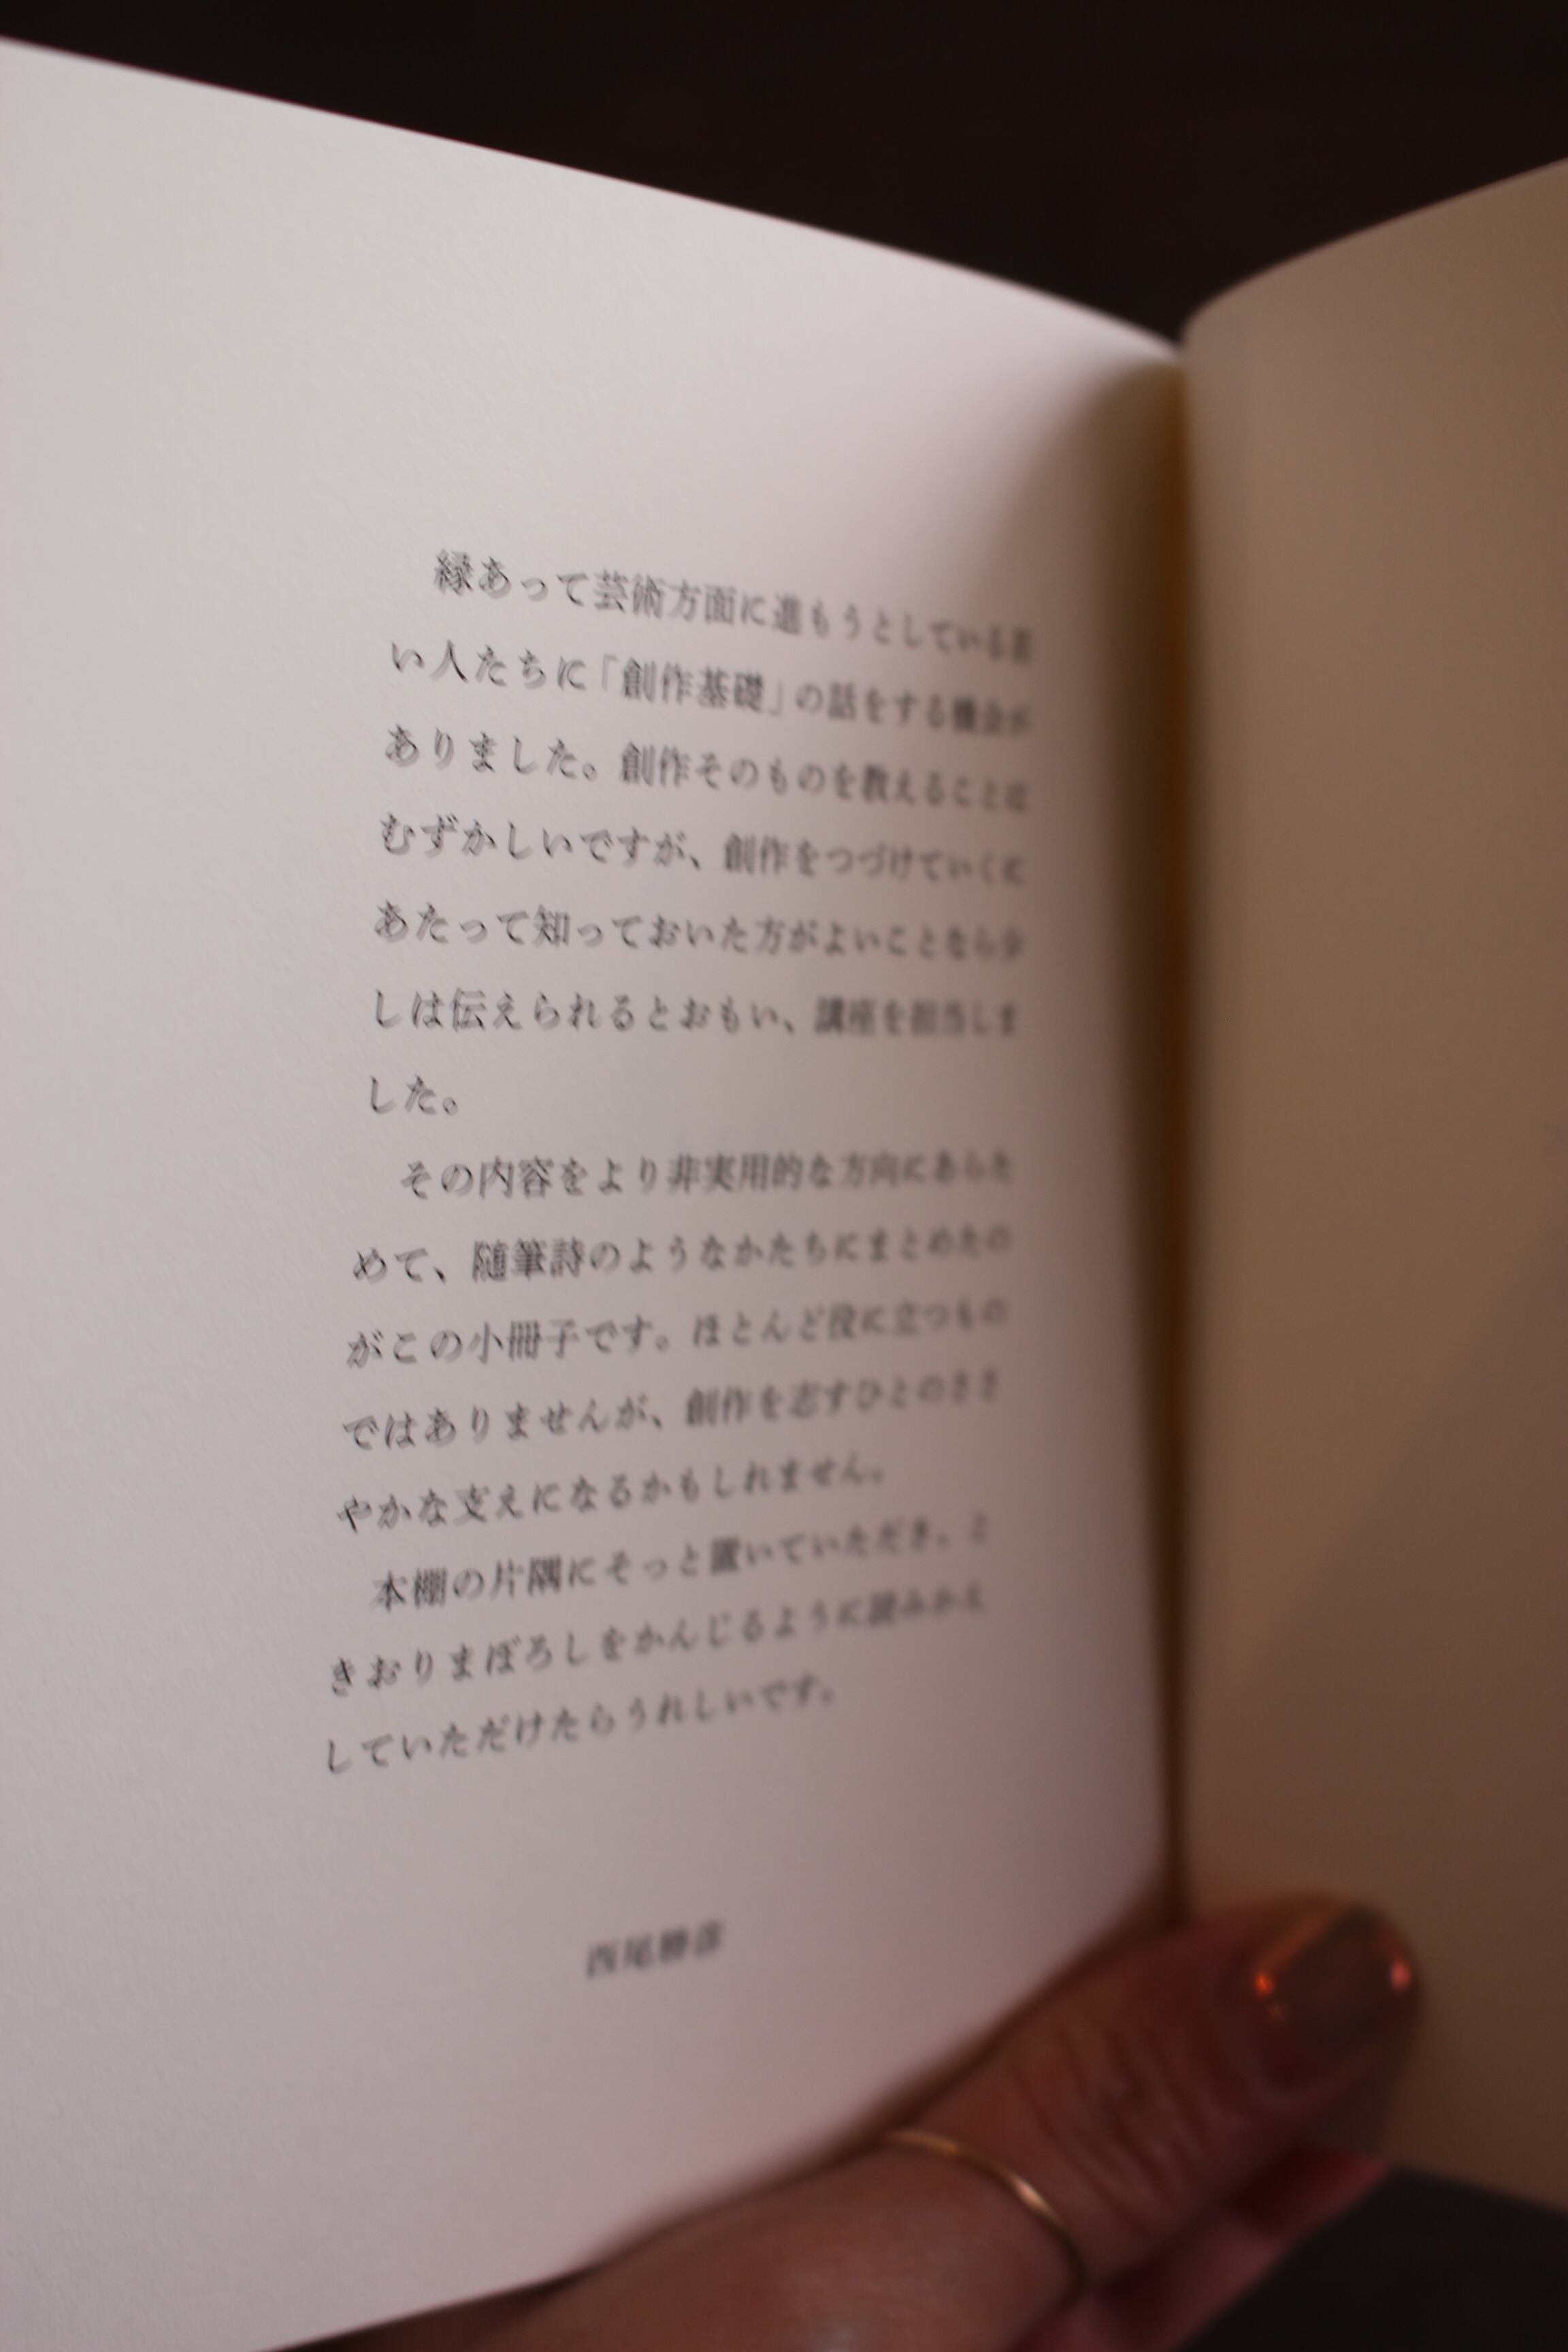 縁あって芸術方面に進もうとしている若
い人たちに「創作基礎」の話をする機会が
ありました。創作そのものを教えることは
むずかしいですが、創作をつづけていくに
あたって知っておいた方がよいことなら少
しは伝えられるとおもい、講座を担当しま
した。
その内容をより非実用的な方向にあらた
めて、随筆詩のようなかたちにまとめたの
がこの小冊子です。ほとんど役に立つもの
ではありませんが、創作を志すひとのささ
やかな支えになるかもしれません。
本棚の片隅にそっと置いていただき、と
きおりまぼろしをかんじるように読みかえ
していただけたらうれしいです。
西尾勝彦